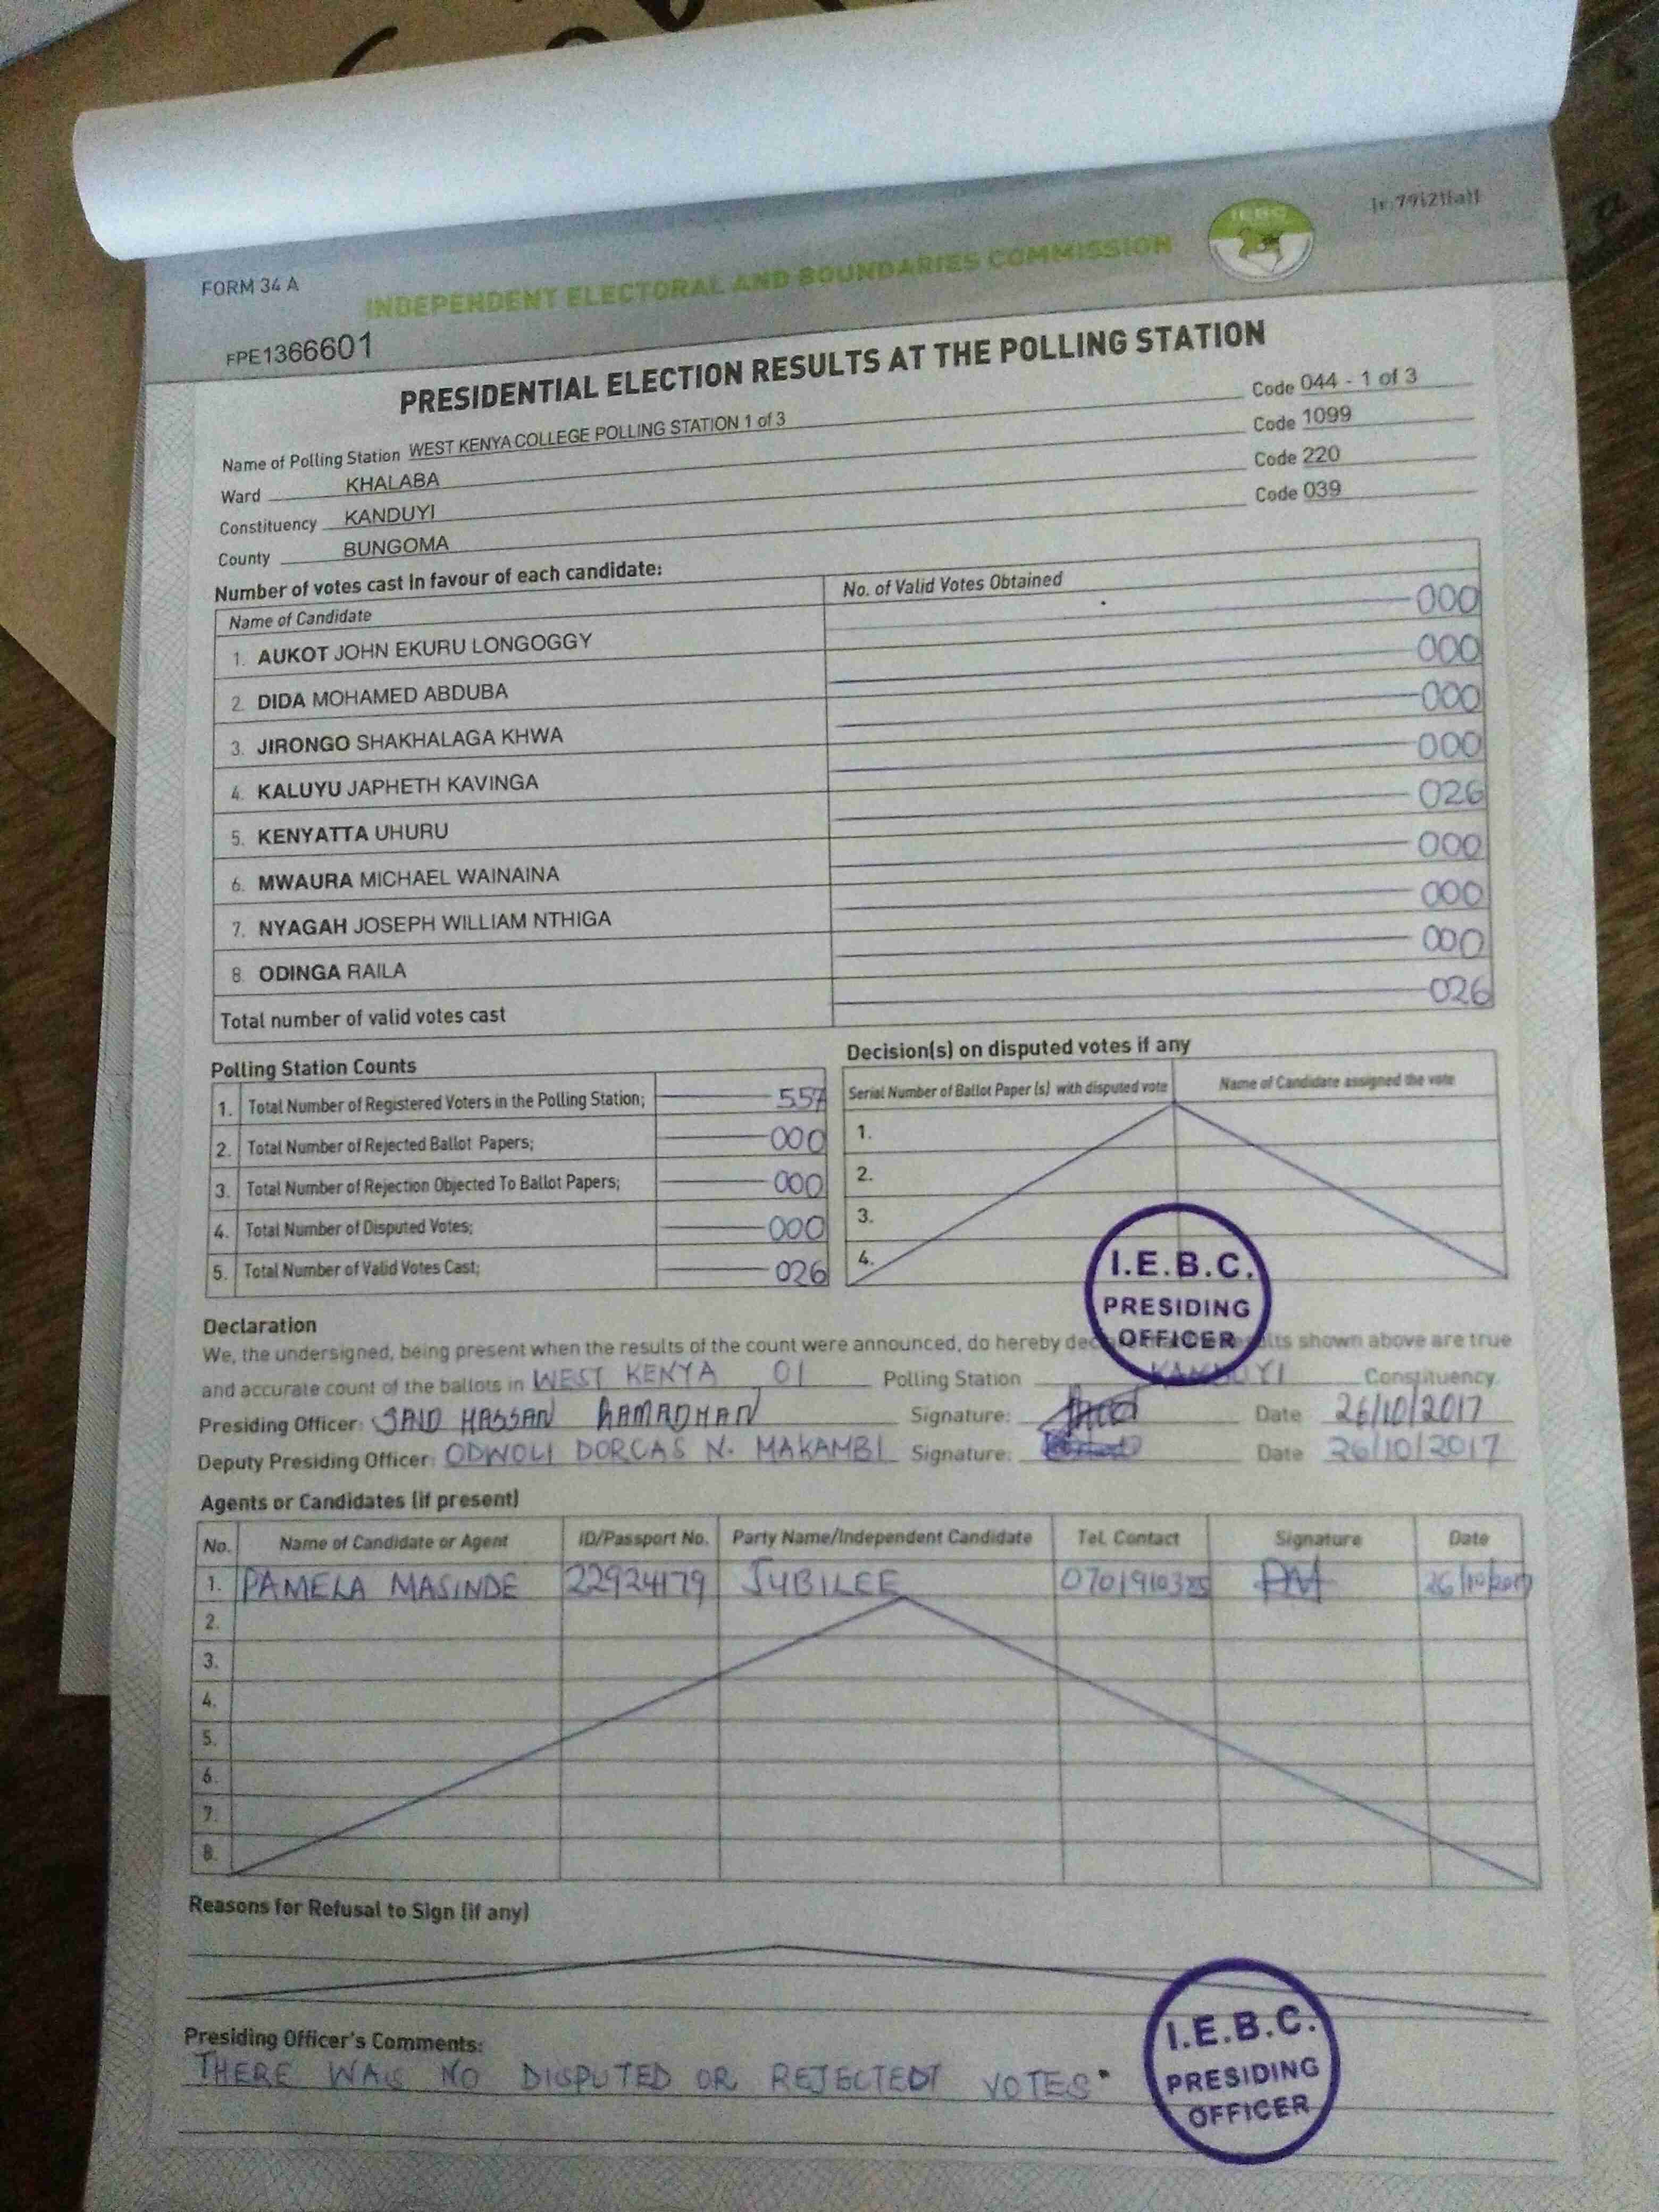 FORM 34 A
INDEPENDENT ELECTORAL AND BOUNDARIES COMMISSION
IEBC
FPE1366601
PRESIDENTIAL ELECTION RESULTS AT THE POLLING STATION
Name of Polling Station WEST KENYA COLLEGE POLLING STATION 1 of 3 Code 044 - 1 of 3
Ward KHALABA Code 1099
Constituency KANDUYI Code 220
County BUNGOMA Code 039
Number of votes cast in favour of each candidate:
Name of Candidate No. of Valid Votes Obtained
1. AUKOT JOHN EKURU LONGOGGY 000
2. DIDA MOHAMED ABDUBA 000
3. JIRONGO SHAKHALAGA KHWA 000
4. KALUYU JAPHETH KAVINGA 000
5. KENYATTA UHURU 026
6. MWAURA MICHAEL WAINAINA 000
7. NYAGAH JOSEPH WILLIAM NTHIGA 000
8. ODINGA RAILA 000
Total number of valid votes cast 026
Polling Station Counts
1. Total Number of Registered Voters in the Polling Station; 557
2. Total Number of Rejected Ballot Papers; 000
3. Total Number of Rejection Objected To Ballot Papers; 000
4. Total Number of Disputed Votes; 000
5. Total Number of Valid Votes Cast; 026
Decision(s) on disputed votes if any
Serial Number of Ballot Paper (s) with disputed vote Name of Candidate assigned the vote
1.
2.
3.
4.
I.E.B.C.
PRESIDING
OFFICER
Declaration
We, the undersigned, being present when the results of the count were announced, do hereby shown above are true
and accurate count of the ballots in WEST KENYA 01 Polling Station KANDUYI Constituency.
Presiding Officer: SAID HASSAN RAMADHAN Signature: Date 26/10/2017
Deputy Presiding Officer: ODWOLI DORCAS N. MAKAMBI Signature: Date 26/10/2017
Agents or Candidates (if present)
No. Name of Candidate or Agent ID/Passport No. Party Name/Independent Candidate Tel. Contact Signature Date
1. PAMELA MASINDE 22924179 JUBILEE 0701910385 PM 26/10/2017
2.
3.
4.
5.
6.
7.
8.
Reasons for Refusal to Sign (if any)
Presiding Officer's Comments:
THERE WAS NO DISPUTED OR REJECTEDT VOTES.
I.E.B.C.
PRESIDING
OFFICER